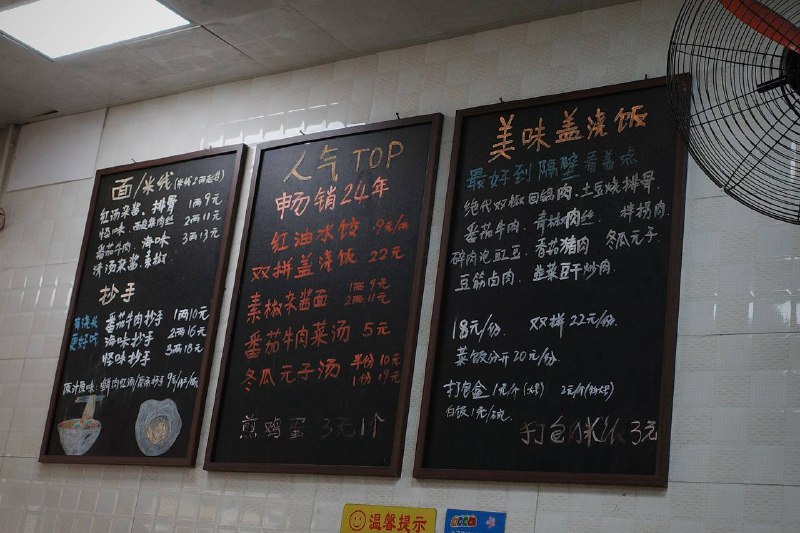 面/米线(米线2两起售)
红汤杂酱、排骨 1两9元
怪味、酸菜肉丝 2两11元
番茄牛肉、海味 3两13元
清汤杂酱、素椒
抄手
有浇头
更好吃
番茄牛肉抄手 1两10元
海味抄手 2两16元
怪味抄手 3两18元
原汁原味: 鲜肉红油/清汤抄手
人气TOP
畅销24年
红油水饺 9元/两
双拼盖浇饭 22元
素椒杂酱面 1两9元
2两11元
番茄牛肉菜汤 5元
冬瓜元子汤 半份10元
1份19元
煎鸡蛋 3元1个
美味盖浇饭
最好到隔壁看着点
绝代双椒回锅肉、土豆烧排骨、
番茄牛肉、青椒肉丝 拌猪肉、
碎肉泡豇豆、香菇猪肉、冬瓜元子
豆筋卤肉、韭菜豆干炒肉、
18元/份、双拼22元/份、
菜饭分开20元/份、
打包盒1元/个
白饭1元/碗
打包 3元
温馨提示